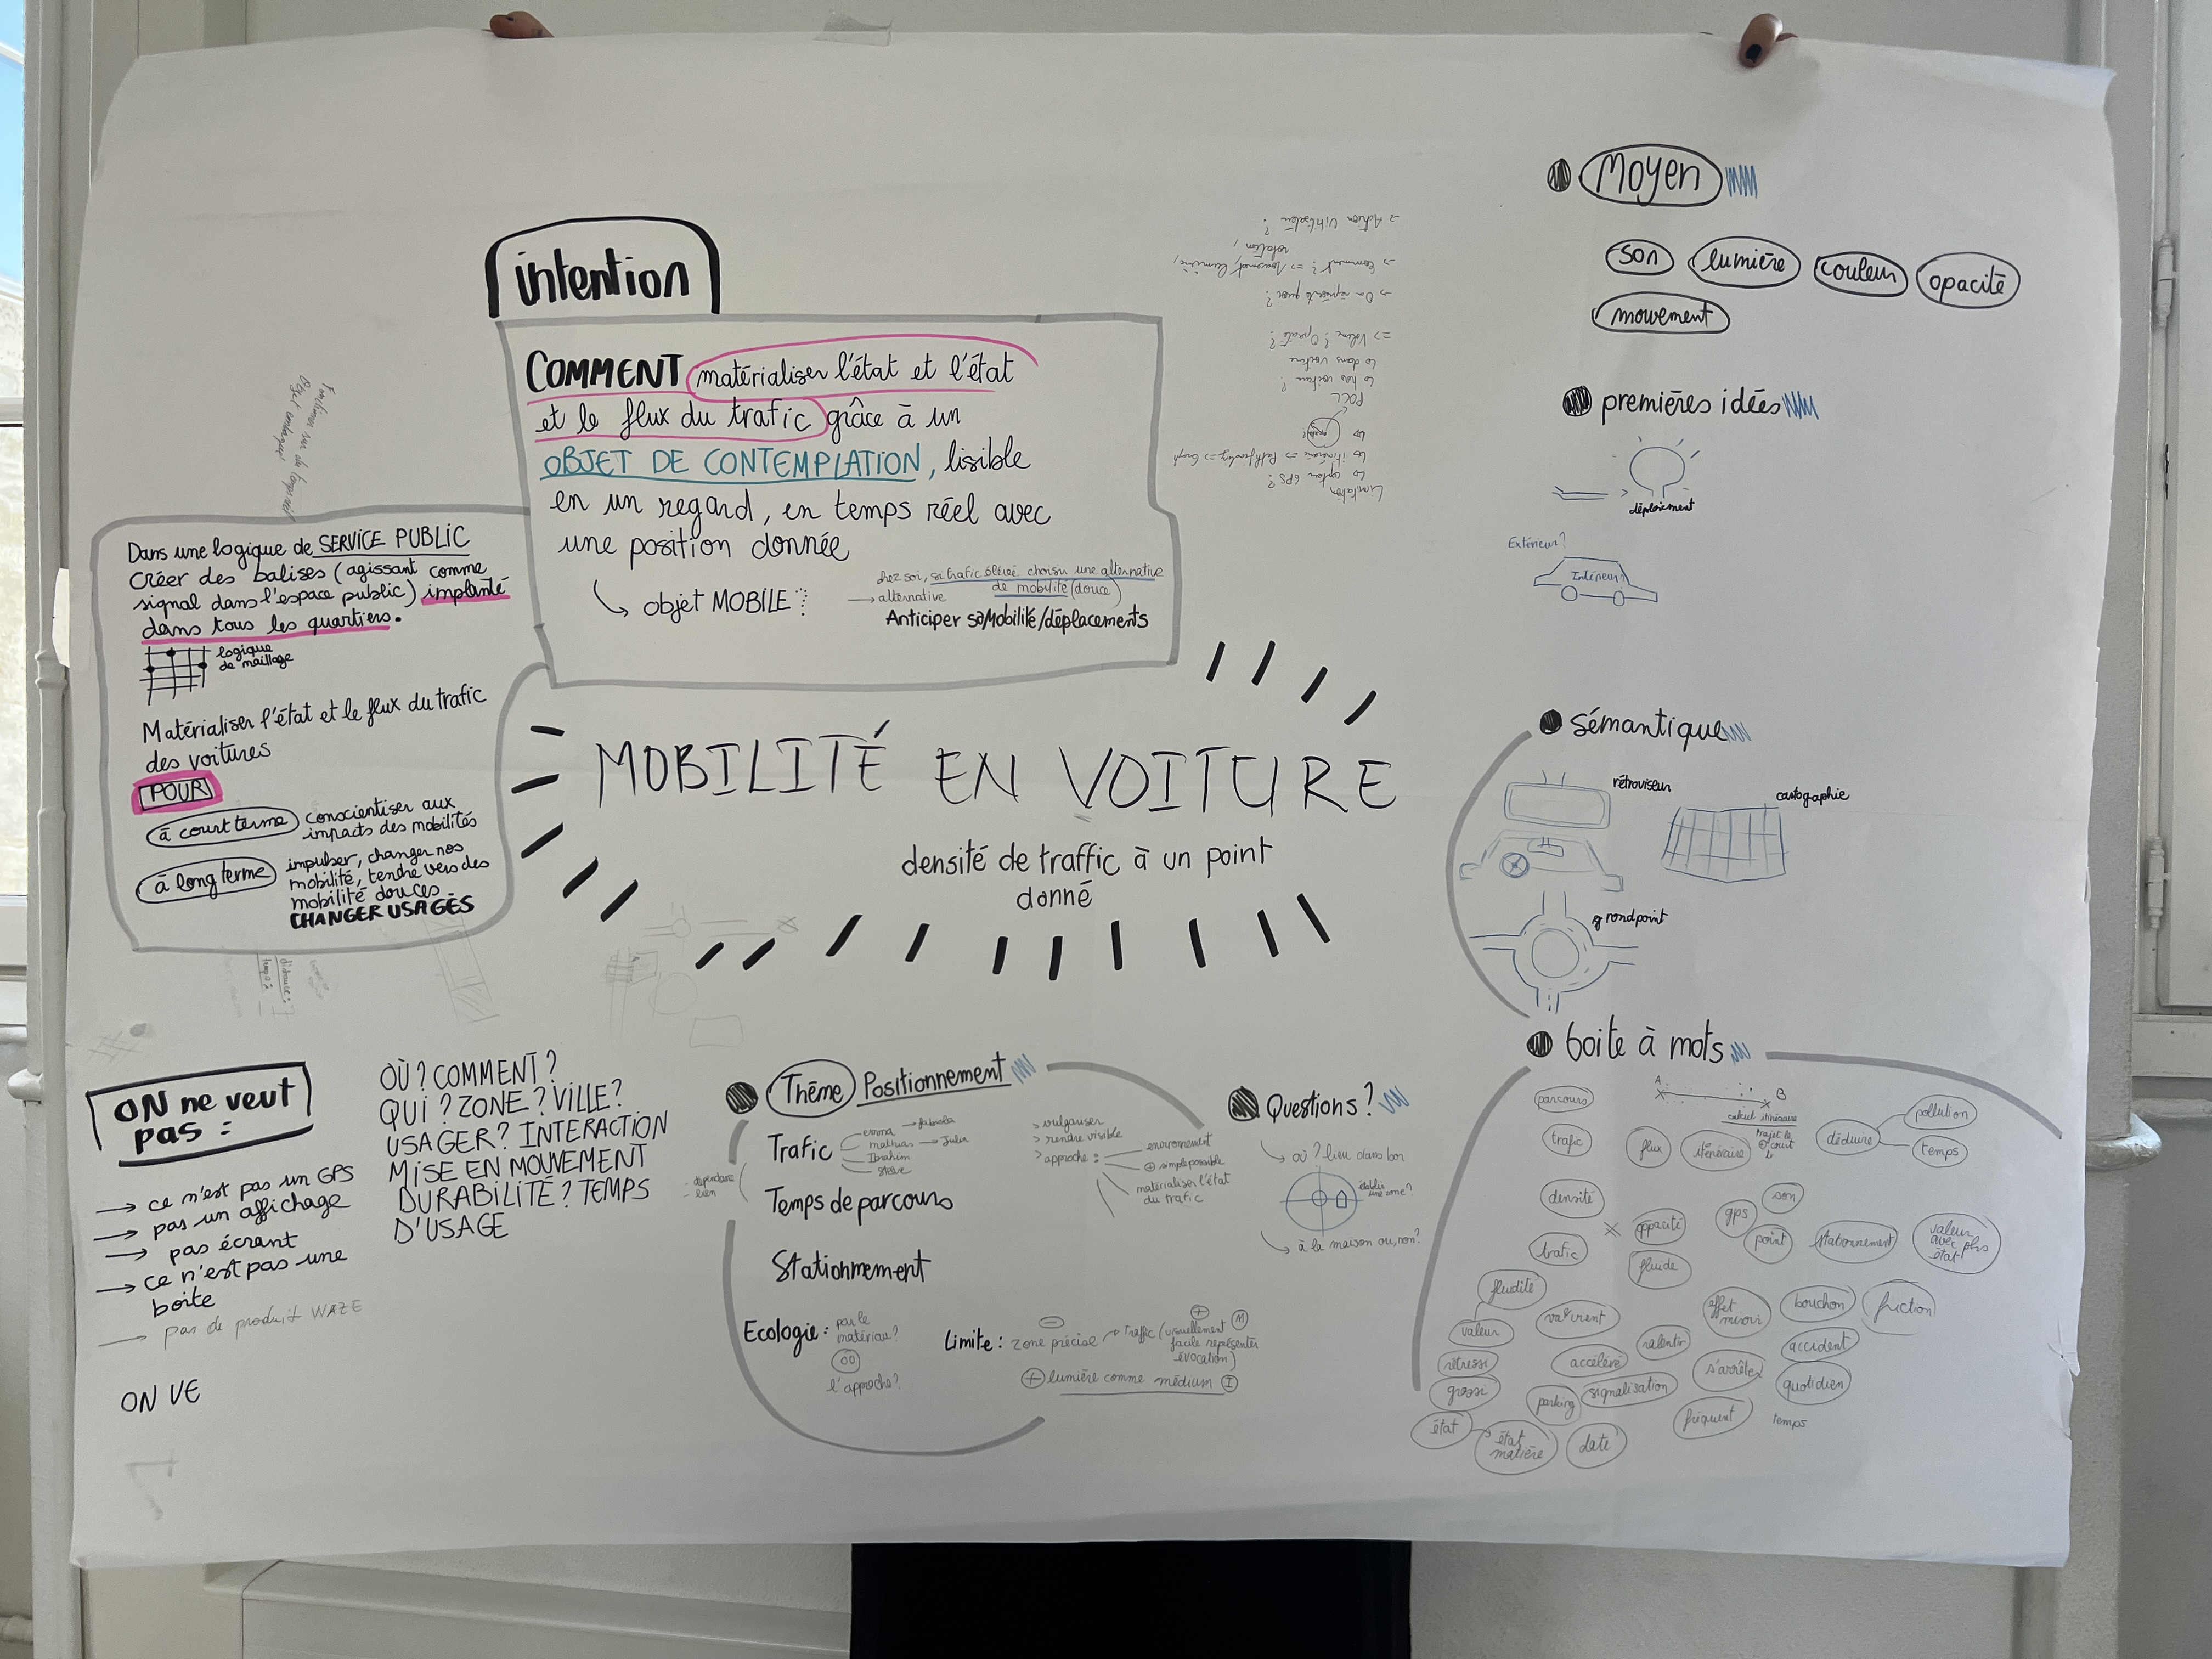 intention
COMMENT matérialiser l'état et l'état
et le flux du trafic grâce à un
OBJET DE CONTEMPLATION, lisible
en un regard, en temps réel avec
une position donnée
objet MOBILE
chez soi, si trafic élevé choisir une alternative
de mobilité (douce)
→ alternative
Anticiper sa Mobilité/déplacements
Dans une logique de SERVICE PUBLIC
créer des balises (agissant comme
signal dans l'espace public) implanté
dans tous les quartiers.
logique
de maillage
Matérialiser l'état et le flux du trafic
des voitures
POUR
à court terme conscientiser aux
impacts des mobilités
à long terme impulser, changer nos
mobilité, tendre vers des
mobilité douces
CHANGER USAGES
MOBILITÉ EN VOITURE
densité de traffic à un point
donné
→ Action Utilisateur ?
rotation,
→ Comment ? => mouvement, lumière,
→ On représente quoi ?
=> Volume ? Opacité ?
↳ dans voiture
↳ hors voiture ?
↳ itinéraire => Pathfinding => Graph
↳ option GPS ?
Limitation
distance :
temps :
Moyen
son lumière couleur opacité
mouvement
premières idées
déploiement
Extérieur ?
Intérieur ?
sémantique
rétroviseur
cartographie
grondpoint
ON ne veut
pas :
→ ce n'est pas un GPS
→ pas un affichage
→ pas écrant
→ ce n'est pas une
boite
→ pas de produit WAZE
ON VE
OÙ ? COMMENT ?
QUI ? ZONE ? VILLE ?
USAGER ? INTERACTION
MISE EN MOUVEMENT
DURABILITÉ ? TEMPS
D'USAGE
Thème Positionnement
Trafic
emma → fabiola
mathias → Julia
Ibrahim
Steve
- lien
> vulgariser
> rendre visible
> approche :
environnement
+ simple possible
matérialiser l'état
du trafic
Temps de parcours
Stationnement
Ecologie : par le
matériau ?
OU
l'approche ?
Limite : zone précise → traffic (visuellement M
facile représenter
évocation)
+ lumière comme médium I
Questions ?
→ où ? lieu dans bor
établir
une zone ?
→ à la maison ou, non ?
boite à mots
A B
calcul itinéraire
trajet le
+ court
parcours
trafic flux itinéraire
déduire
pollution
temps
densité
oppacité gps son
point stationnement
valeur
avec plrs
état
trafic
fluide
fluidité
valeur
effet
miroir
bouchon friction
ralentir
accident
rétressi
accéléré
s'arrêter
grossi
parking signalisation
quotidien
fréquent temps
état
état
matière
date